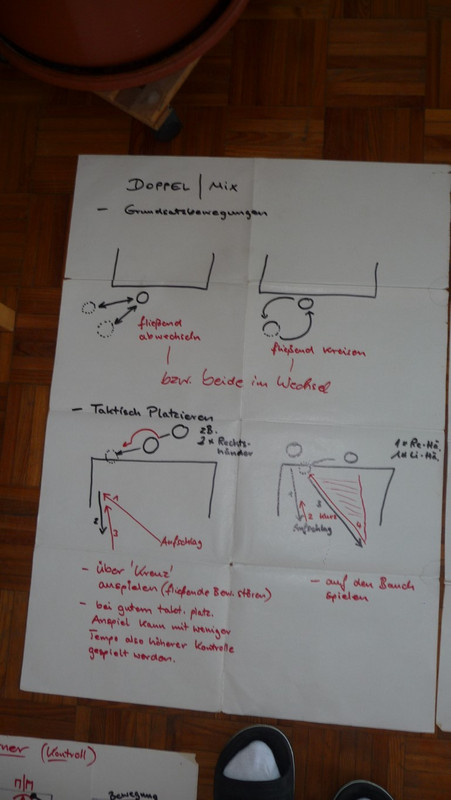 DOPPEL | MIX
- Grundsatzbewegungen
fließend
abwechseln
fließend kreisen
bzw. beide im Wechsel
- Taktisch Platzieren
zB.
2 x Rechts-
händer
1 x Re-Hä.
1 x Li-Hä.
1
2
3
Aufschlag
1
2 kurz
3
4
Aufschlag
- über 'Kreuz'
anspielen (fließende Bew. stören)
- bei gutem takt. platz.
Anspiel kann mit weniger
Tempo also höherer Kontrolle
gespielt werden.
- auf den Bauch
spielen
ner (Kontroll)
Bewegung